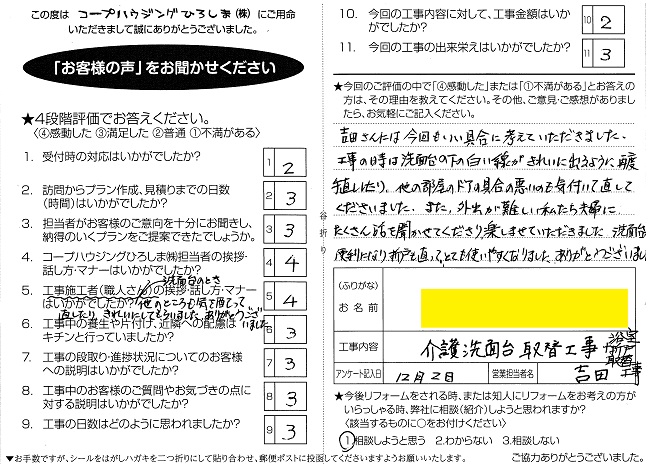 この度は コープハウジングひろしま(株) にご用命
いただきまして誠にありがとうございました。
「お客様の声」をお聞かせください
★4段階評価でお答えください。
〈④感動した ③満足した ②普通 ①不満がある〉
1. 受付時の対応はいかがでしたか? 1 2
2. 訪問からプラン作成、見積りまでの日数
(時間)はいかがでしたか? 2 3
3. 担当者がお客様のご意向を十分にお聞きし、
納得のいくプランをご提案できたでしょうか。 3 3
4. コープハウジングひろしま㈱担当者の挨拶・
話し方・マナーはいかがでしたか? 4 4
洗面台のとき
5. 工事施工者(職人さん)の挨拶・話し方・マナー
はいかがでしたか? 5 4
他のところも気を配って
直したり きれいにしてもらいました。ありがとうござ
いました
6. 工事中の養生や片付け、近隣への配慮は
キチンと行っていましたか? 6 3
7. 工事の段取り・進捗状況についてのお客様
への説明はいかがでしたか? 7 3
8. 工事中のお客様のご質問やお気づきの点に
対する説明はいかがでしたか? 8 3
9. 工事の日数はどのように思われましたか? 9 3
▼お手数ですが、シールをはがしハガキを二つ折りにして貼り合わせ、郵便ポストに投函してくださいますようお願いいたします。
谷折り
10. 今回の工事内容に対して、工事金額はいか
がでしたか? 10 2
11. 今回の工事の出来栄えはいかがでしたか? 11 3
★今回のご評価の中で「④感動した」または「①不満がある」とお答え
の方は、その理由を教えてください。その他、ご意見・ご感想がありまし
たら、お気軽にご記入ください。
吉田さんには今回もいい具合に考えていただきました。
工事の時は洗面台の下の白い線がきれいに出るように再度
直したり、他の部屋のドアの具合の悪いのも気付いて直して
くださいました。また、外出が難しい私たち夫婦に
たくさん話を聞かせてくださり楽しませていただきました 洗面台
便利になり折戸も直ってとても使いやすくなりました ありがとうございました
(ふりがな)
お名前
工事内容 介護洗面台 取替工事 浴室
折戸
取替
工事
アンケート記入日 12月2日 営業担当者名 吉田
★今後リフォームをされる時、または知人にリフォームをお考えの方が
いらっしゃる時、弊社に相談(紹介)しようと思われますか?
〈該当するものに○をお付けください〉
1.相談しようと思う 2.わからない 3.相談しない
ご協力ありがとうございました。